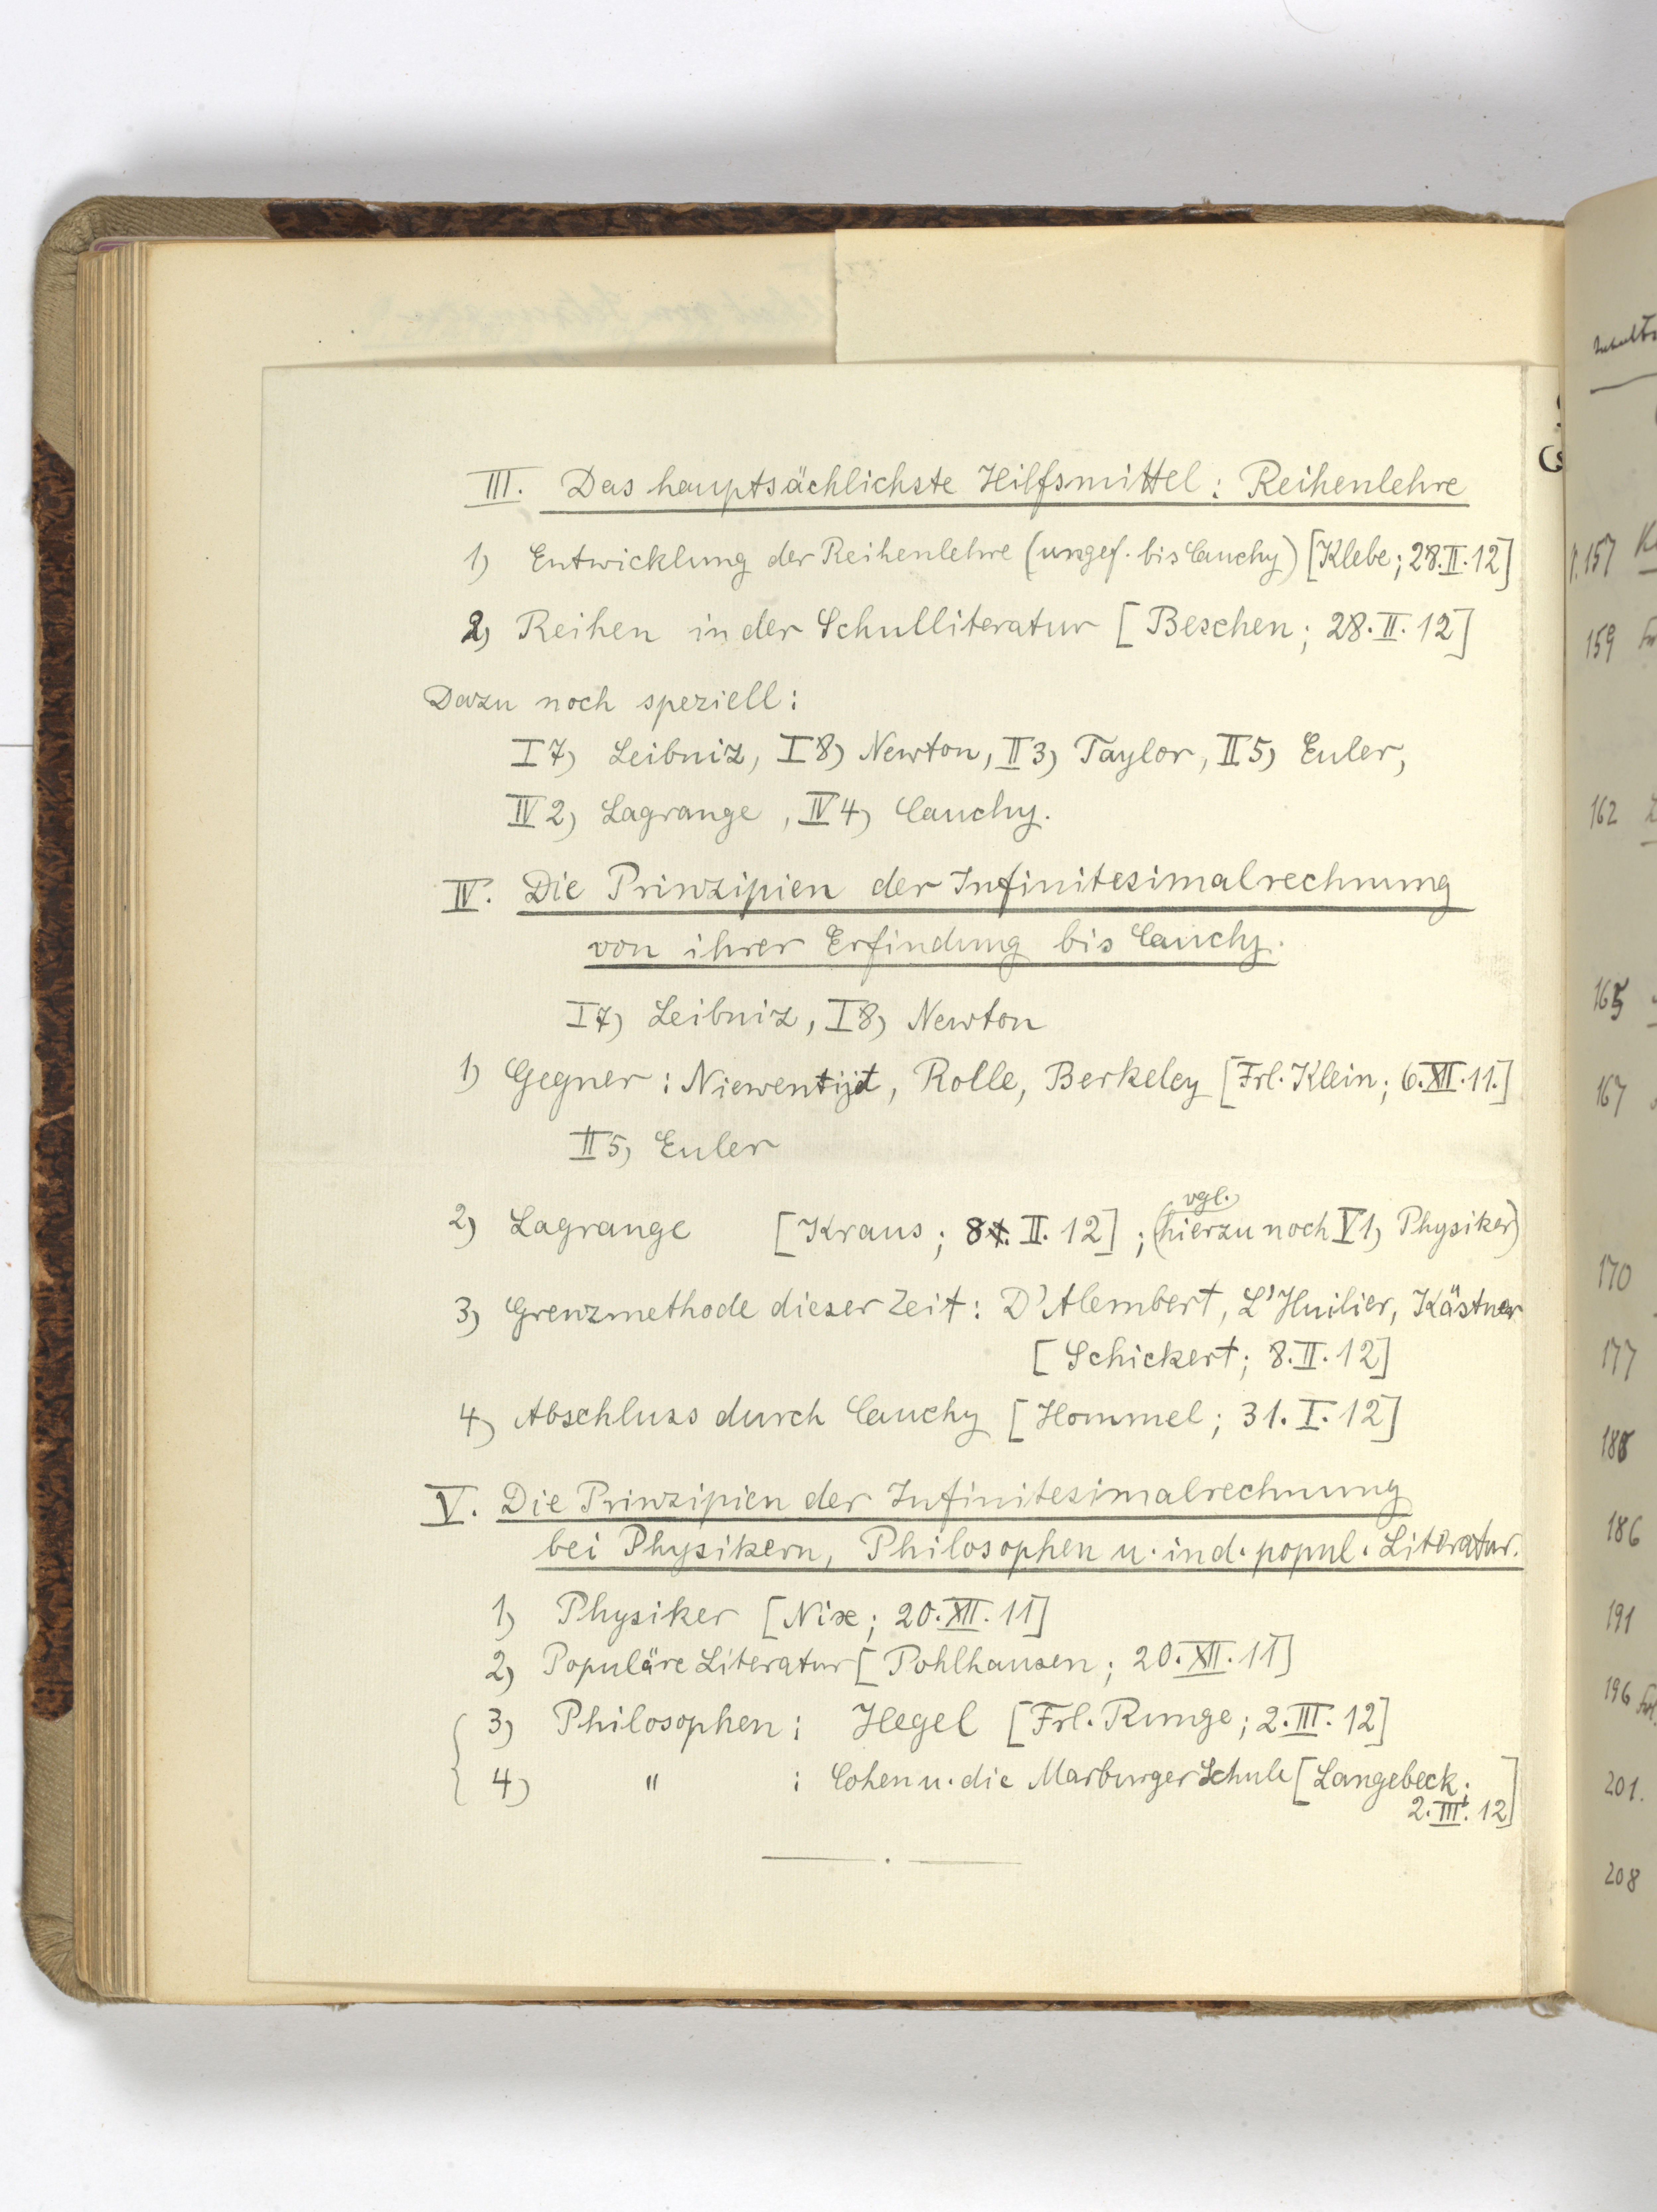 III. Das hauptsächlichste Hilfsmittel: Reihenlehre
1) Entwicklung der Reihenlehre (ungef. bis Cauchy) [Klebe; 28.II.12]
2) Reihen in der Schulliteratur [Beschen; 28.II.12]
Dazu noch speziell:
I7) Leibniz, I8) Newton, II3) Taylor, II5) Euler,
IV2) Lagrange, IV4) Cauchy.
IV. Die Prinzipien der Infinitesimalrechnung
von ihrer Erfindung bis Cauchy.
I7) Leibniz, I8) Newton
1) Gegner: Niewentijt, Rolle, Berkeley [Frl. Klein; 6.XII.11.]
II5) Euler
vgl.
2) Lagrange [Kraus; 8. II. 12]; (hierzu noch V1) Physiker)
3) Grenzmethode dieser Zeit: D'Alembert, L'Huilier, Kästner
[Schickert; 8.II.12]
4) Abschluss durch Cauchy [Hommel; 31.I.12]
V. Die Prinzipien der Infinitesimalrechnung
bei Physikern, Philosophen u. in d. popul. Literatur.
1) Physiker [Nix; 20.XII.11]
2) Populäre Literatur [Pohlhausen; 20.XII.11]
3) Philosophen: Hegel [Frl. Runge; 2.III.12]
4) " : Cohen u. die Marburger Schule [Langebeck;
2.III.12]
157
159
162
165
167
170
177
186
191
196
201.
208